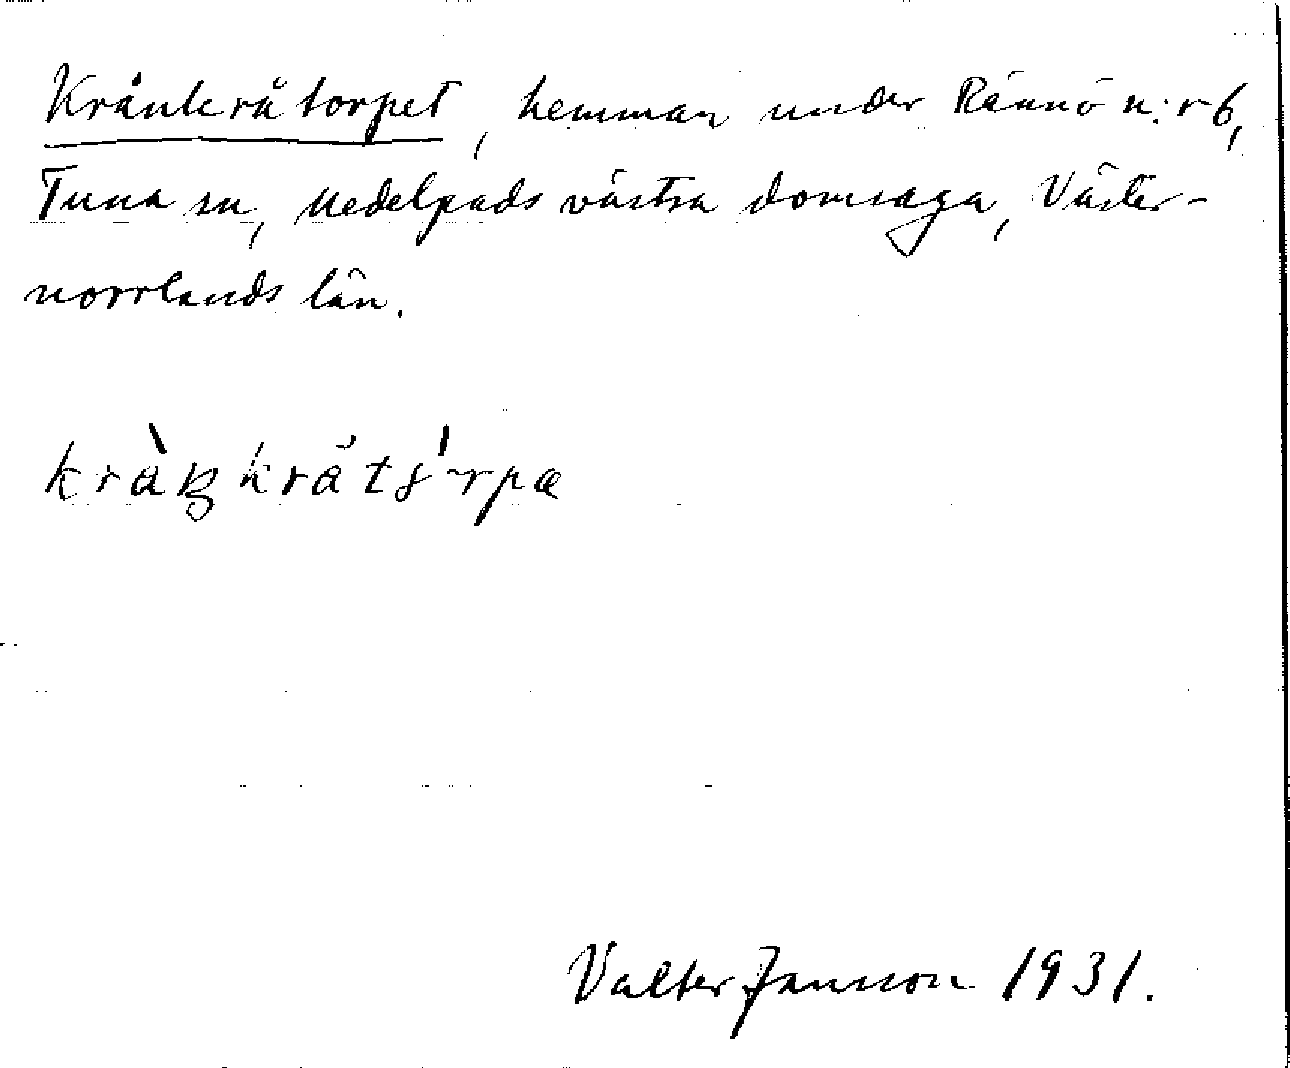 Krånkråtorpet, hemman under Rännö n:r 6,
Tuna sn, Medelpads västra domsaga, Väster-
norrlands län.
Valter Jansson 1931.